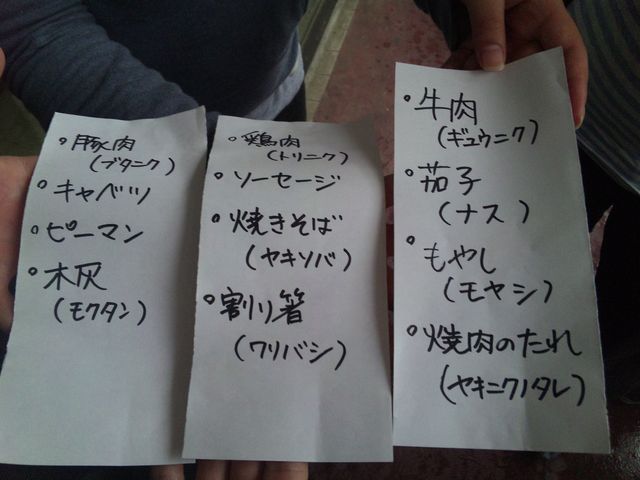 。豚肉
(ブタニク)
。キャベツ
。ピーマン
。木灰
(モクタン)
。鶏肉
(トリニク)
。ソーセージ
。焼きそば
(ヤキソバ)
。割り箸
(ワリバシ)
。牛肉
(ギュウニク)
。茄子
(ナス)
。もやし
(モヤシ)
。焼肉のたれ
(ヤキニクノタレ)